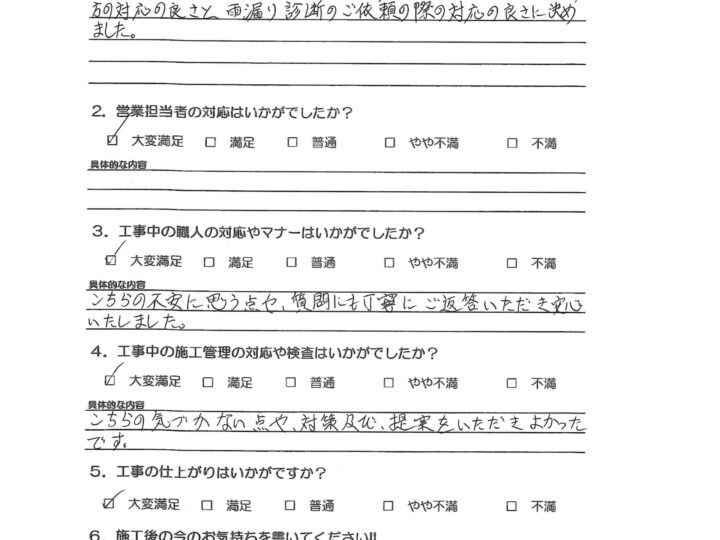 方の対応の良さと、雨漏り診断のご依頼の際の対応の良さに決め
ました。
2．営業担当者の対応はいかがでしたか？
☑ 大変満足 □ 満足 □ 普通 □ やや不満 □ 不満
具体的な内容
3．工事中の職人の対応やマナーはいかがでしたか？
☑ 大変満足 □ 満足 □ 普通 □ やや不満 □ 不満
具体的な内容
こちらの不安に思う点や、質問にも丁寧にご返答いただき安心
いたしました。
4．工事中の施工管理の対応や検査はいかがでしたか？
☑ 大変満足 □ 満足 □ 普通 □ やや不満 □ 不満
具体的な内容
こちらの気づかない点や、対策及び、提案をいただきよかった
です。
5．工事の仕上がりはいかがですか？
☑ 大変満足 □ 満足 □ 普通 □ やや不満 □ 不満
6．施工後の今のお気持ちを書いてください!!